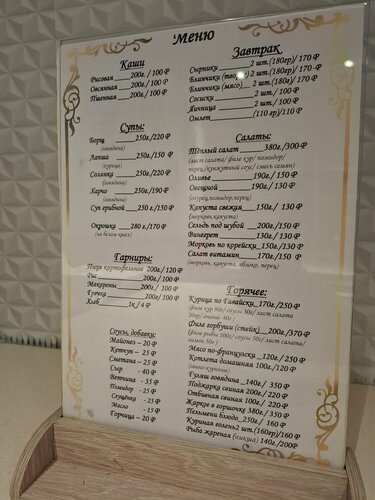 Меню
Каши
Рисовая 200г. / 100 ₽
Овсянная 200г. / 100 ₽
Пшенная 200г. / 100 ₽
Супы:
Борщ 250г./220 ₽
(говядина)
Лапша 250г./150 ₽
(курица)
Солянка 250г./220 ₽
(говядина)
Харчо 250г./190 ₽
(говядина)
Суп грибной 250 г./150 ₽
Окрошка 280 г./170 ₽
(на белом квасе)
Гарниры:
Пюре картофельное 200г./120 ₽
Рис 200г./ 100 ₽
Макароны 200г./ 100 ₽
Гречка 200г./ 100 ₽
Хлеб 1к./ 4 ₽
Соусы, добавки:
Майонез - 20 ₽
Кетчуп - 25 ₽
Сметана - 25 ₽
Сыр - 40 ₽
Ветчина - 35 ₽
Помидор - 25 ₽
Сгущёнка - 25 ₽
Масло - 15 ₽
Горчица - 20 ₽
Завтрак
Сырники 2 шт.(180гр)/ 170 ₽
Блинчики (творог) 2 шт.(180гр)/ 150 ₽
Блинчики (мясо) 2 шт.(180гр)/ 170 ₽
Сосиски 2 шт./ 100 ₽
Яичница 2 шт./ 100 ₽
Омлет (110 гр)/110 ₽
Салаты:
Тёплый салат 380г./300 ₽
(лист салата/ филе кур/ помидор/
перец/ кунжутный соус/ смесь семян)
Оливье 190г./ 150 ₽
Овощной 190г./ 130 ₽
(огурец,помидор,перец)
Капуста свежая 150г./ 130 ₽
(морковь,капуста)
Сельдь под шубой 200г./150 ₽
Винегрет 130г./ 130 ₽
Морковь по корейски 150г./130 ₽
Салат витамин 170г./150 ₽
(морковь, капуста, яблоко, перец)
Горячее:
Курица по Гавайски 170г./250 ₽
(филе кур 80г/ соусы 30г/лист салата
20гр/ ананас 40г)
Филе горбуши (стейк) 200г./370 ₽
(филе рыбы 100г/ соусы 50г/ лист салата/
лимон 50г)
Мясо по-французски 120г./250 ₽
Котлета домашняя 100г./120 ₽
(свино-куриные)
Гуляш говядина 140г./ 350 ₽
Поджарка свиная 200г./ 220 ₽
Отбивная свиная 100г./ 220 ₽
Жаркое в горшочке 380г./ 350 ₽
Пельмени блюдо 250г./ 160 ₽
Куриная голень2 шт.(160гр)/160 ₽
Рыба жареная (пикша) 140г./200₽